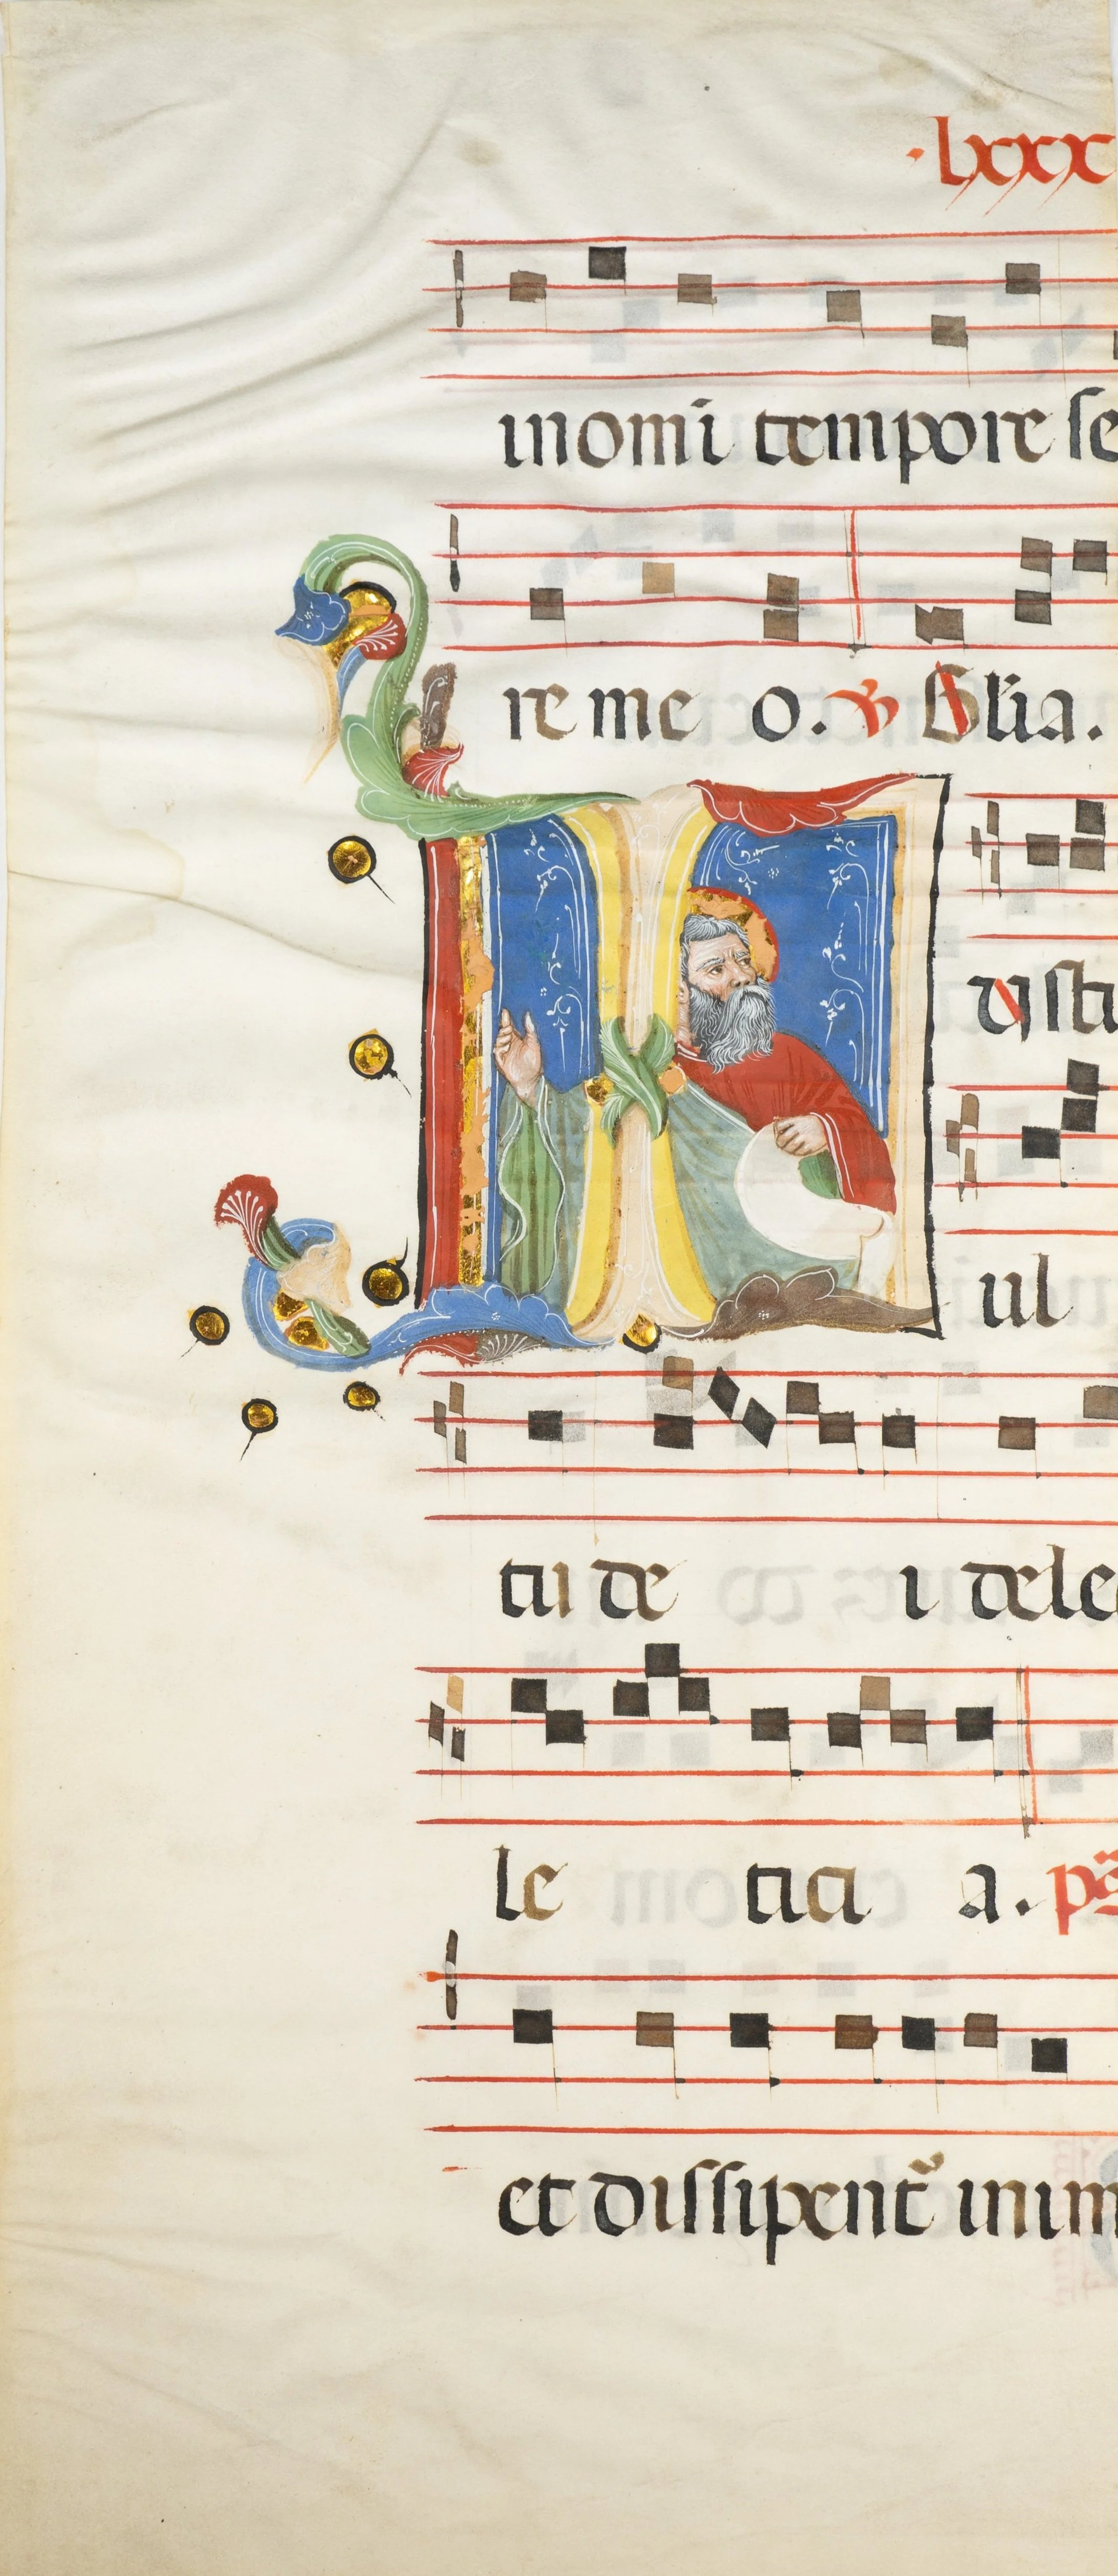 ·lxxx
in om̄i tempore se
re me o. ℣ Glia.
I usti
ul
tu de i dele
le tici a. ps̄
et dissipent᷑ inim